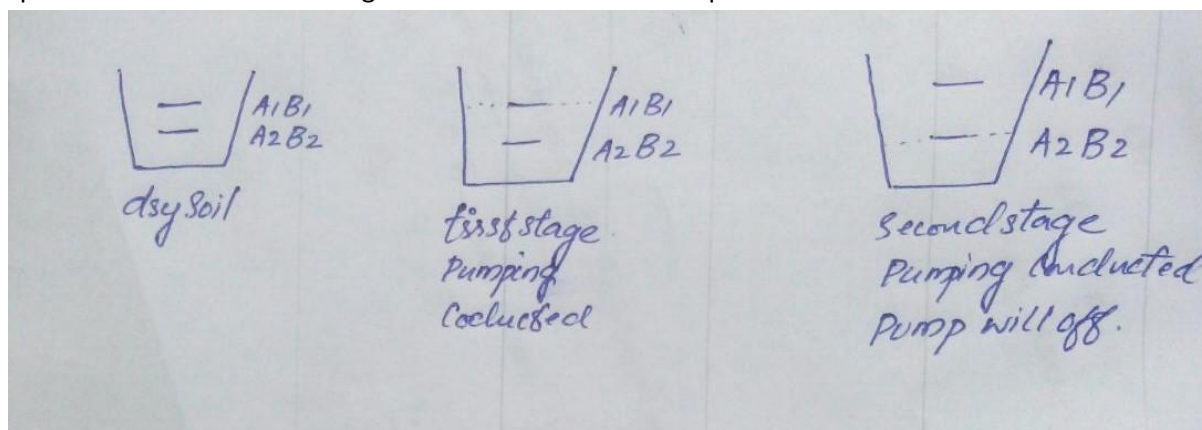 A1B1
A2B2
dsy Soil
A1B1
A2B2
first stage
Pumping
Coclucted
A1B1
A2B2
Second stage
Pumping Conducted
Pump will off.